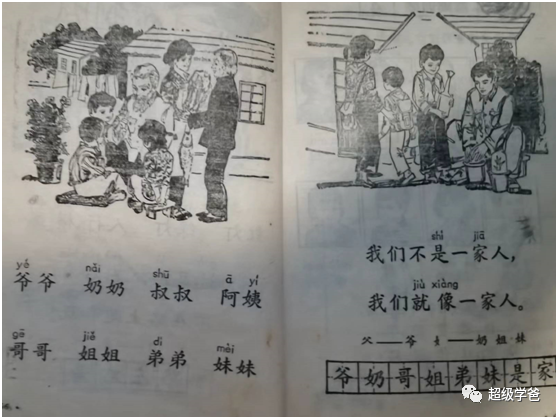 yé nǎi shū ā yí
爷爷 奶奶 叔叔 阿姨
gē jiě dì mèi
哥哥 姐姐 弟弟 妹妹
shì jiā
我们不是一家人，
jiù xiàng
我们就像一家人。
父——爷 纟——奶 姐 妹
爷奶哥姐弟妹是家
超级学爸